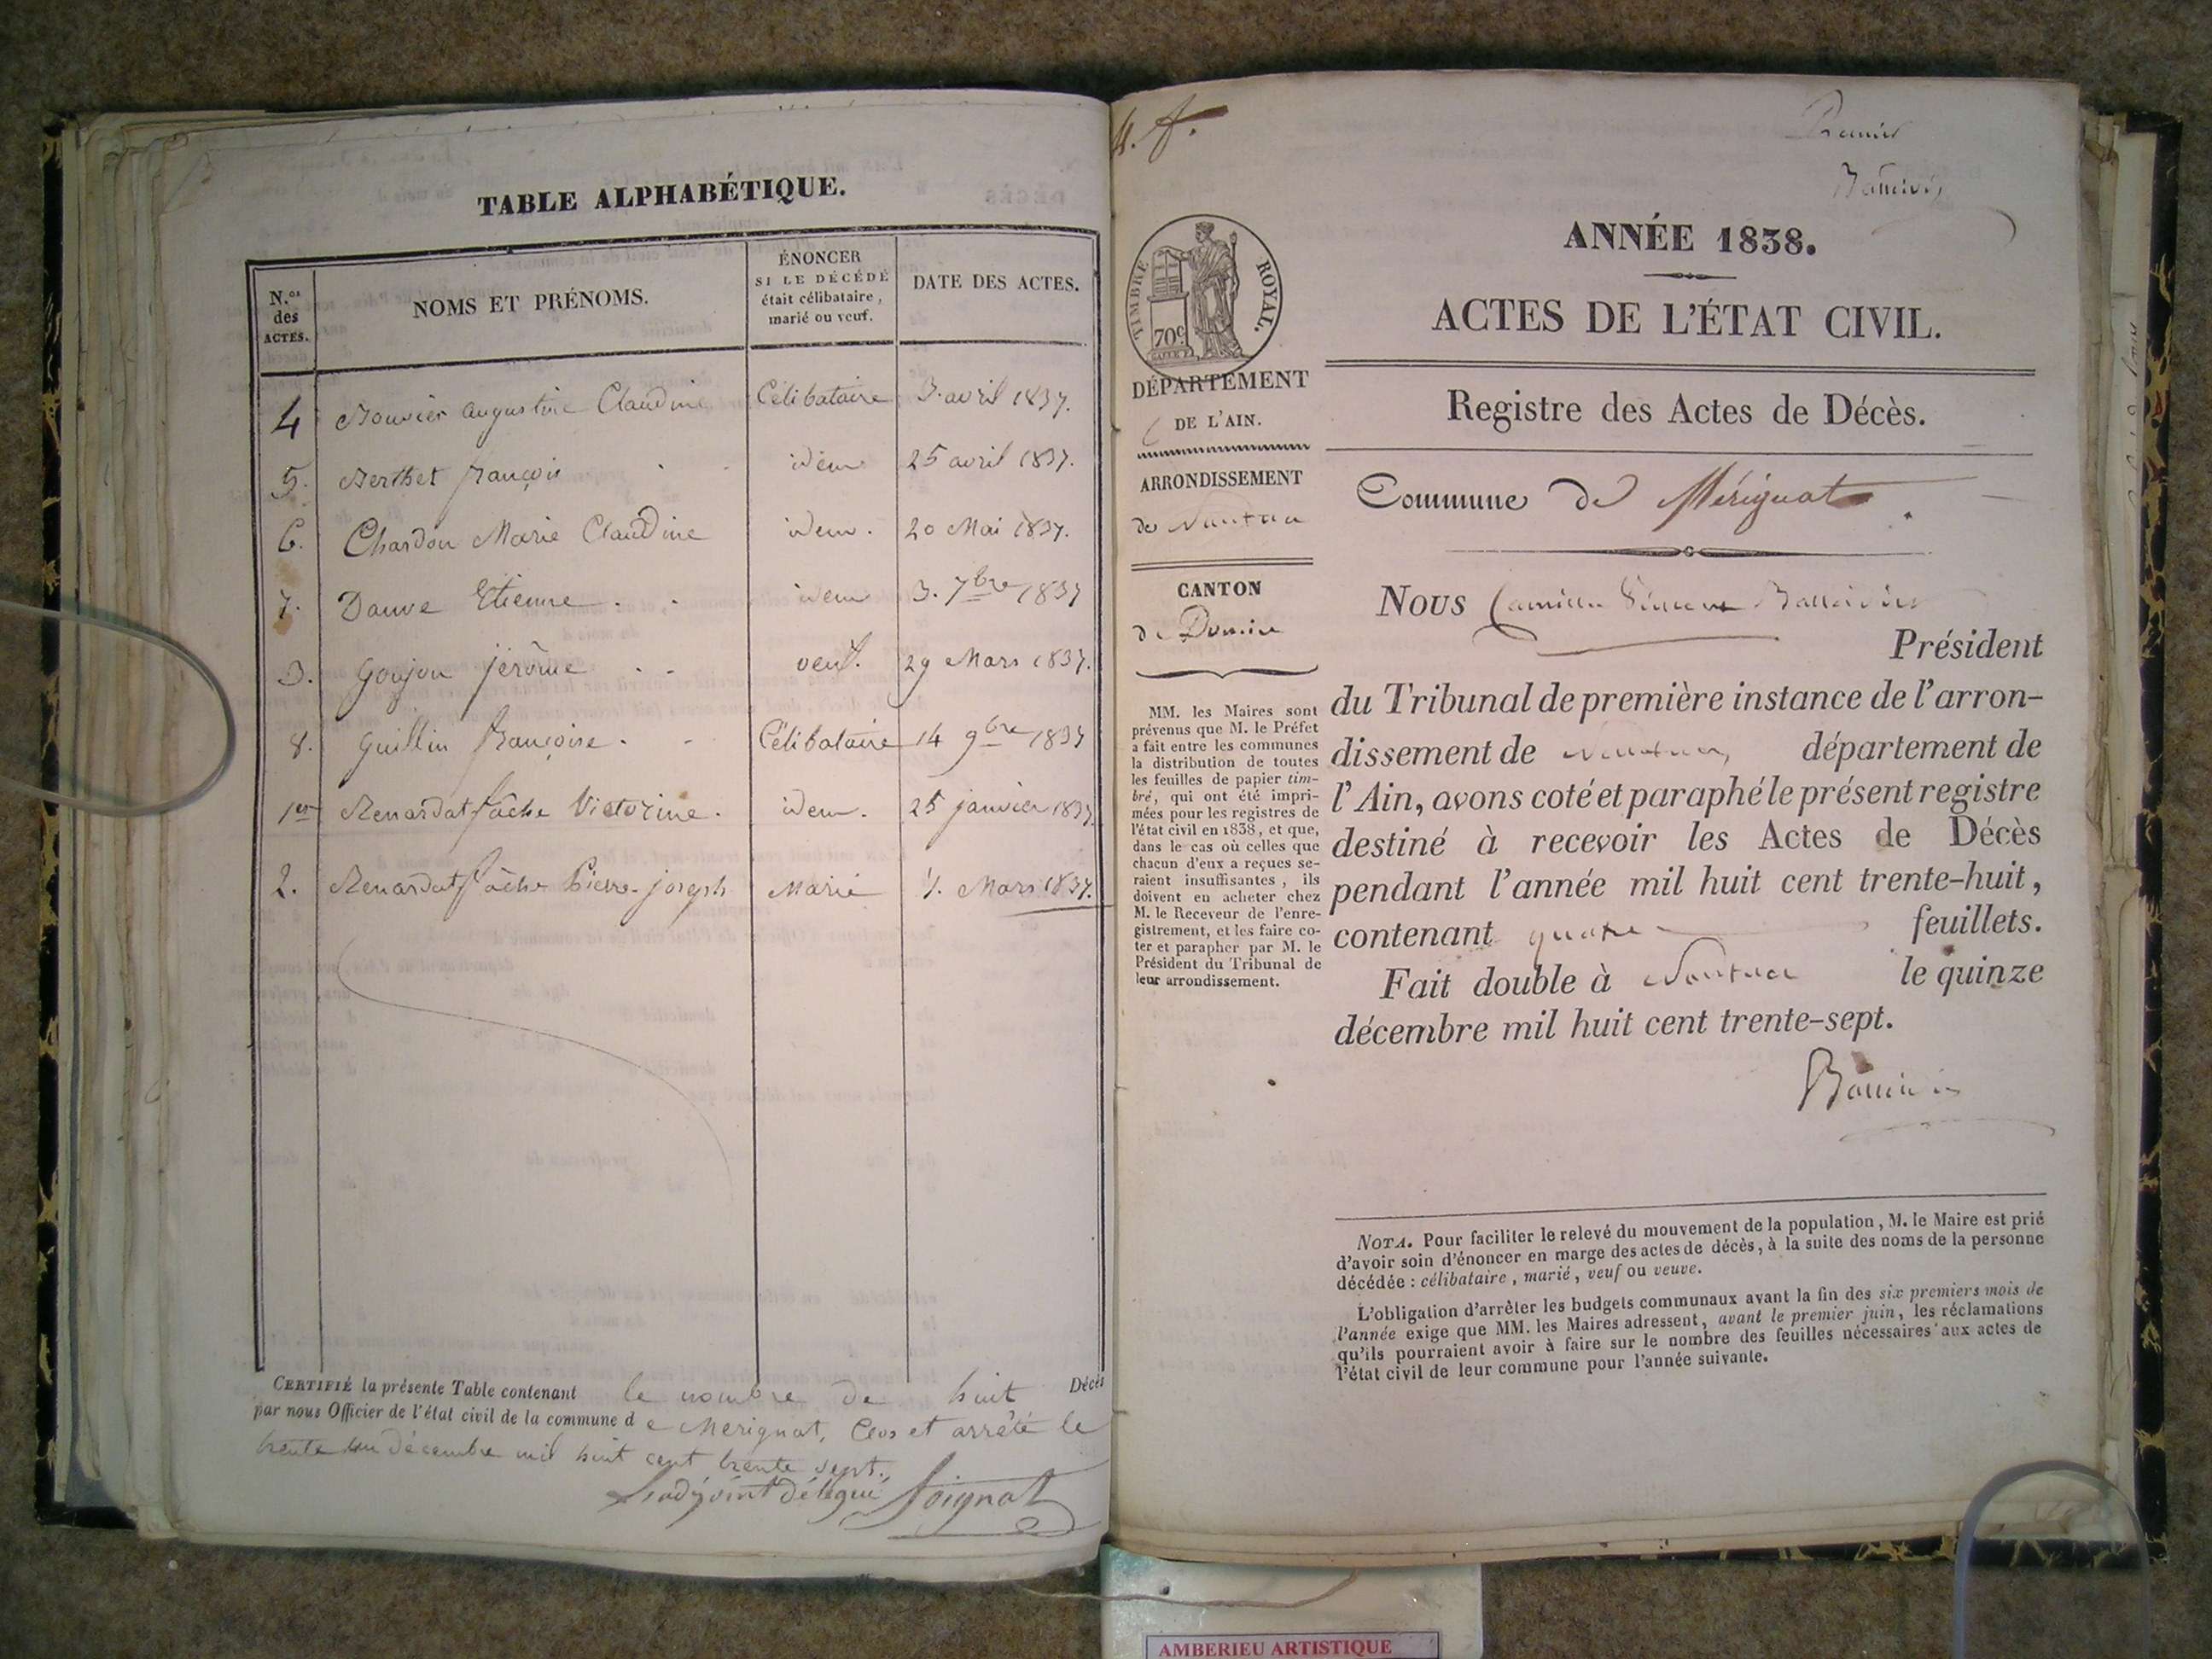 TABLE ALPHABÉTIQUE.
N.os des ACTES.
NOMS ET PRÉNOMS.
ÉNONCER
SI LE DÉCÉDÉ
était célibataire,
marié ou veuf.
DATE DES ACTES.
4 Bouvier Augustine Claudine Célibataire 3. avril 1837.
5. Berthet François idem 25 avril 1837.
6. Chardon Marie Claudine idem. 20 Mai 1837.
7. Dauve Etienne. idem 3. 7bre 1837
3. Goujon Jérôme veuf. 29 Mars 1837.
8. Guillin Françoise. Célibataire 14 9bre 1837
1er Renardat fâche Victorine. idem. 25 janvier 1837.
2. Renardat fâche Pierre-joseph Marié Mars 1837.
CERTIFIÉ la présente Table contenant le nombre de huit Décès
par nous Officier de l'état civil de la commune de Merignat, Clos et arrêté le
trente un décembre mil huit cent trente sept.
L'adjoint délégué Soignat
Premier
ANNÉE 1838.
ACTES DE L'ÉTAT CIVIL.
Registre des Actes de Décès.
Commune de Mérignat.
TIMBRE ROYAL.
70c
DÉPARTEMENT
DE L'AIN.
ARRONDISSEMENT
de Nantua
CANTON
de Poncin
MM. les Maires sont
prévenus que M. le Préfet
a fait entre les communes
la distribution de toutes
les feuilles de papier tim-
bré, qui ont été impri-
mées pour les registres de
l'état civil en 1838, et que,
dans le cas où celles que
chacun d'eux a reçues se-
raient insuffisantes, ils
doivent en acheter chez
M. le Receveur de l'enre-
gistrement, et les faire co-
ter et parapher par M. le
Président du Tribunal de
leur arrondissement.
Nous Camille
Président
du Tribunal de première instance de l'arron-
dissement de Nantua, département de
l'Ain, avons coté et paraphé le présent registre
destiné à recevoir les Actes de Décès
pendant l'année mil huit cent trente-huit,
contenant quatre feuillets.
Fait double à Nantua le quinze
décembre mil huit cent trente-sept.
NOTA. Pour faciliter le relevé du mouvement de la population, M. le Maire est prié
d'avoir soin d'énoncer en marge des actes de décès, à la suite des noms de la personne
décédée : célibataire, marié, veuf ou veuve.
L'obligation d'arrêter les budgets communaux avant la fin des six premiers mois de
l'année exige que MM. les Maires adressent, avant le premier juin, les réclamations
qu'ils pourraient avoir à faire sur le nombre des feuilles nécessaires aux actes de
l'état civil de leur commune pour l'année suivante.
AMBERIEU ARTISTIQUE